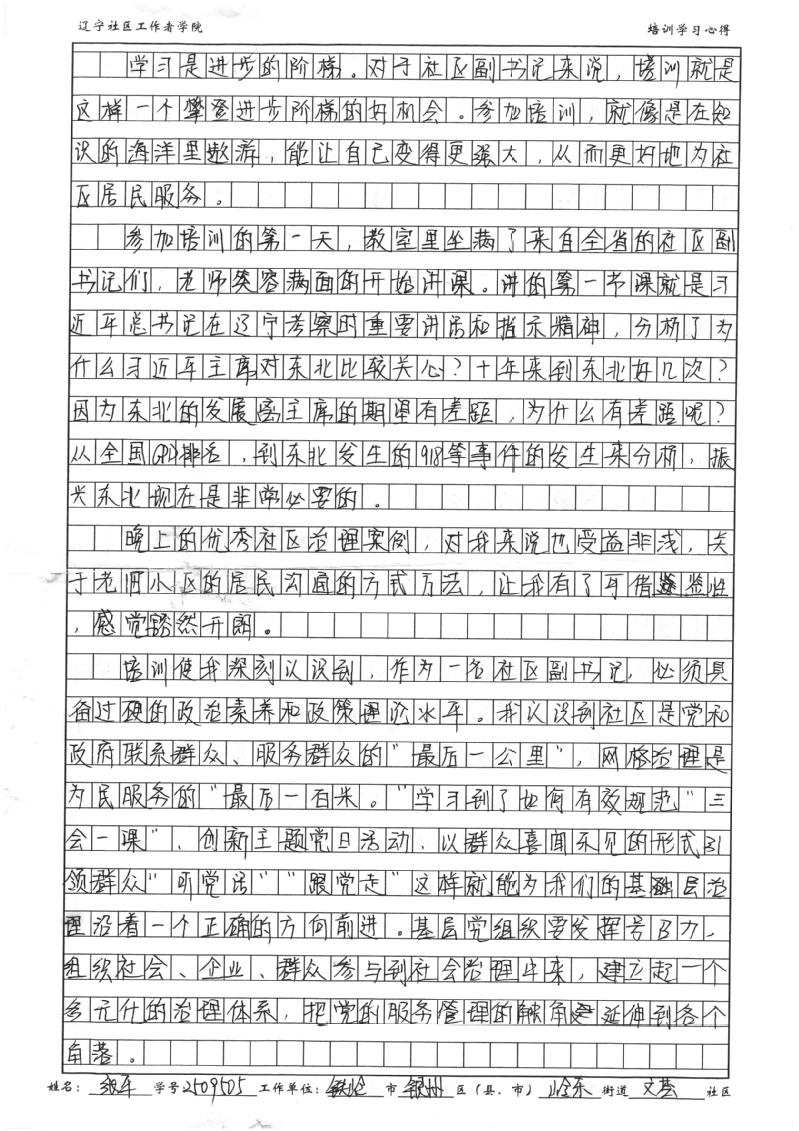 辽宁社区工作者学院 培训学习心得
学习是进步的阶梯。对于社区副书记来说，培训就是
这样一个攀登进步阶梯的好机会。参加培训，就像是在知
识的海洋里遨游，能让自己变得更强大，从而更好地为社
区居民服务。
参加培训的第一天，教室里坐满了来自全省的社区副
书记们，老师笑容满面的开始讲课。讲的第一节课就是习
近平总书记在辽宁考察时重要讲话和指示精神，分析了为
什么习近平主席对东北比较关心？十年来到东北好几次？
因为东北的发展离主席的期望有差距，为什么有差距呢？
从全国GPD排名，到东北发生的918等事件的发生来分析，振
兴东北现在是非常必要的。
晚上的优秀社区治理案例，对我来说也受益非浅，关
于老旧小区的居民沟通的方式方法，让我有了可借鉴性
，感觉豁然开朗。
培训使我深刻认识到，作为一名社区副书记，必须具
备过硬的政治素养和政策理论水平。我认识到社区是党和
政府联系群众、服务群众的"最后一公里"，网格治理是
为民服务的"最后一百米。"学习到了如何有效规范"三
会一课"、创新主题党日活动，以群众喜闻乐见的形式引
领群众"听党话""跟党走"这样就能为我们的基层治
理沿着一个正确的方向前进。基层党组织要发挥号召力，
组织社会、企业、群众参与到社会治理中来，建立起一个
多元化的治理体系，把党的服务管理的触角延伸到各个
角落。
姓名： 学号2509505 工作单位：铁岭 市 银州 区（县、市） 岭东 街道 文荟 社区